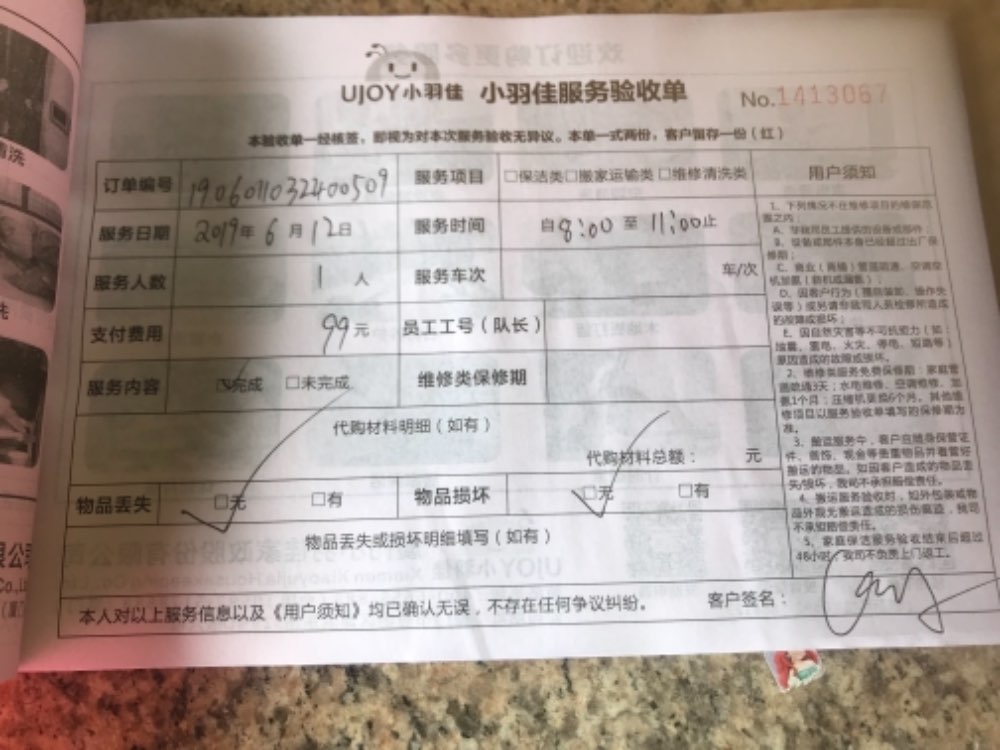 UJOY小羽佳 小羽佳服务验收单 No.1413067
本验收单一经核签，即视为对本次服务验收无异议。本单一式两份，客户留存一份（红）
订单编号 1906011032400509 服务项目 □保洁类□搬家运输类 □维修清洗类
服务日期 2019年 6 月 12日 服务时间 自 8:00 至 11:00止
服务人数 1 人 服务车次 车/次
支付费用 99元 员工工号（队长）
服务内容 □完成 □未完成 维修类保修期
代购材料明细（如有）
代购材料总额： 元
物品丢失 □无 □有 物品损坏 □无 □有
物品丢失或损坏明细填写（如有）
本人对以上服务信息以及《用户须知》均已确认无误，不存在任何争议纠纷。 客户签名：
用户须知
1、下列情况不在维修项目的维保范
围之内：
A、非我司员工提供的设备或部件；
B、设备或部件本身已经超过出厂保
修期；
C、商业（商铺）管道疏通、空调定
D、因客户行为
E、因自然灾害等不可抗拒力（如：
地震、雷电、火灾、停电、短路等）
原因造成的故障或损坏。
2、维修类服务免费保修期：家庭管
道疏通3天；水电维修、空调维修、加
氨1个月；压缩机更换6个月。其他维
修项目以服务验收单填写的保修期为
准。
3、搬运服务中，客户应随身保管证
件、首饰、现金等贵重物品并看管好
搬运的物品。如因客户造成的物品丢
失/损坏，我司不承担赔偿责任。
4、搬运服务验收时，如外包装或物
品外观无搬运造成的损伤痕迹，我司
不承担赔偿责任。
5、家庭保洁服务验收结束后超过
48小时，我司不负责上门返工。